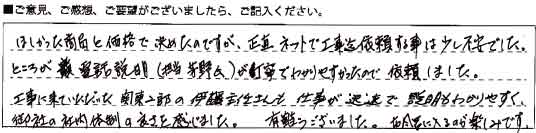 ■ご意見、ご感想、ご要望がございましたら、ご記入ください。
ほしかった商品と価格で決めたのですが、正直ネットで工事を依頼する事は少し不安でした。
ところが電話説明(担当 氏)が丁寧でわかりやすかったので依頼しました。
工事に来ていただいた関東工部の伊藤主任さんも仕事が迅速で説明もわかりやすく、
御社の社内体制の良さを感じました。有難うございました。お風呂に入るのが楽しみです。